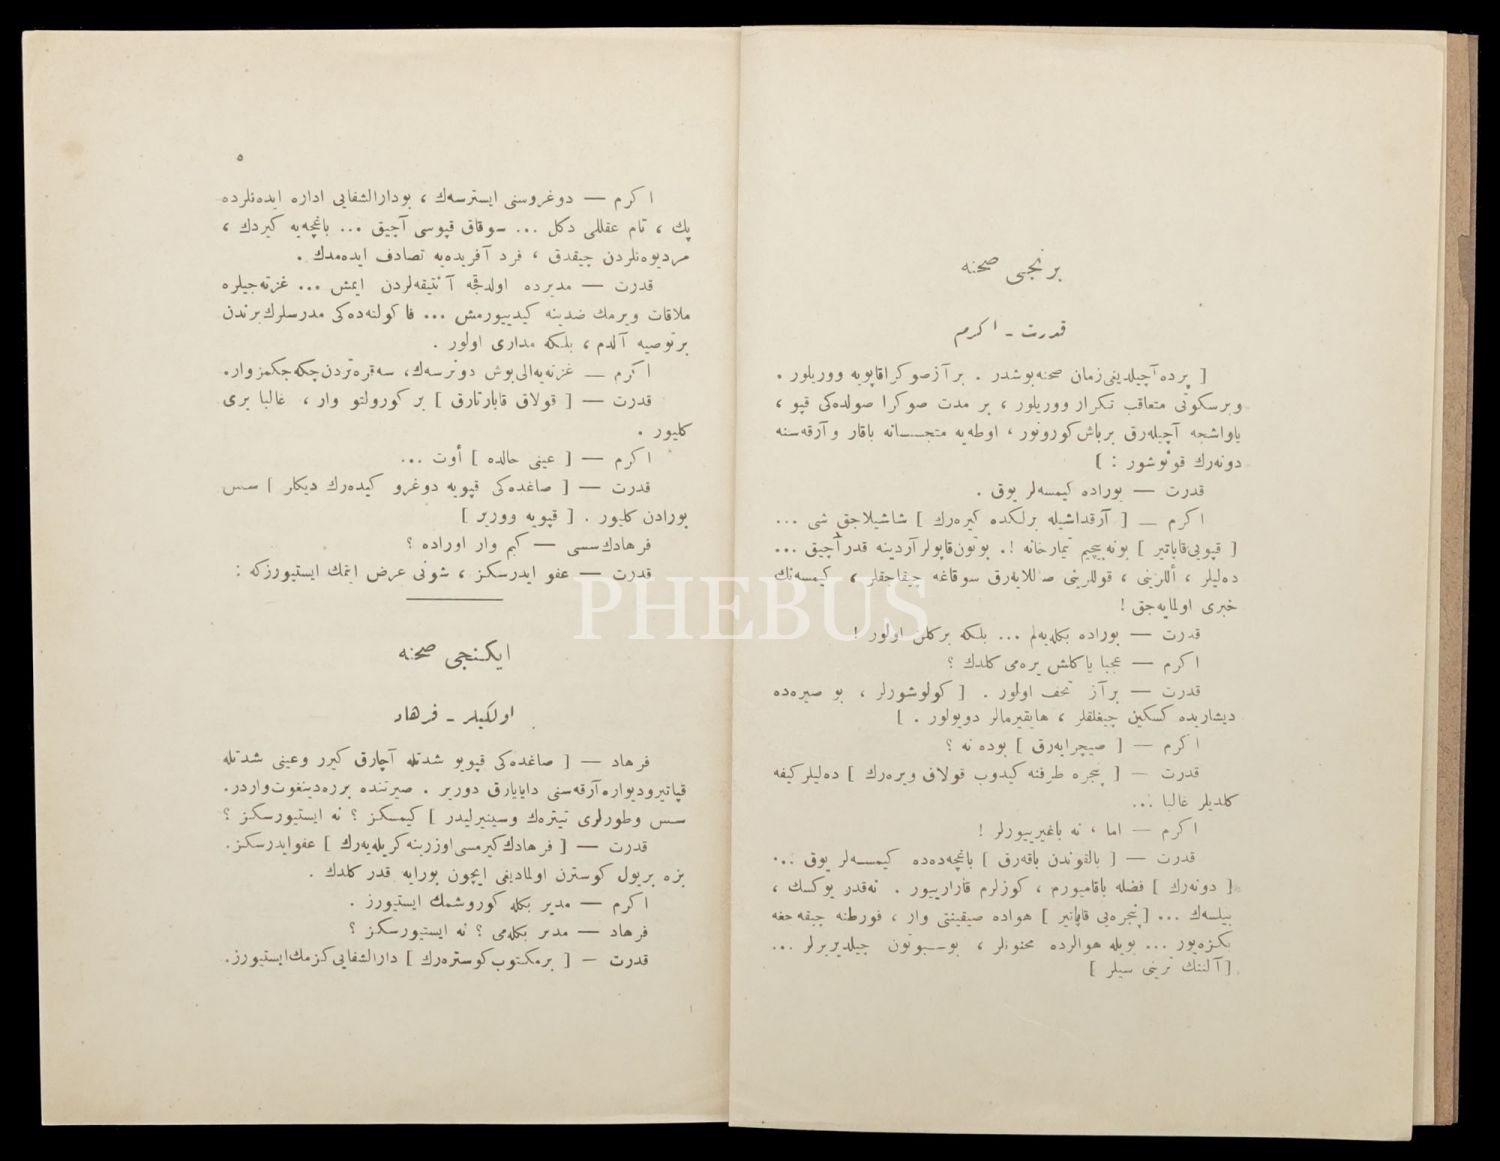 برنجی صحنه
قدرت ـ اكرم
[ پرده آچیلدیغی زمان صحنه بوشدر . بر آز صوكرا قاپویه وورىلور .
و بر سكوتی متعاقب تكرار وورىلور ، بر مدت صوكرا صولده‌كی قپو ،
یاواشجه آچیله‌رق بر باش كورونور ، اوطه‌یه متجسسانه باقار و آرقه‌سنه
دونه‌رك قونوشور : ]
قدرت — بوراده كیمسه‌لر یوق .
اكرم — [ آرقداشیله برلكده كیره‌رك ] شاشیلاجق شی ...
[ قپویی قاپاتیر ] بو نه بیچیم تیمارخانه !. بوتون قاپولر آردینه قدر آچیق ...
ده‌لیلر ، أللرینی ، قوللرینی صاللایه‌رق سوقاغه چیقاجقلر ، كیمسه‌نك
خبری اولمایه‌جق !
قدرت — بوراده بكله‌یه‌لم ... بلكه بر كلن اولور !
اكرم — عجبا یاكلش یره‌می كلدك ؟
قدرت — بر آز تحف اولور . [ كولوشورلر ، بو صیره‌ده
دیشاریده كسكین چیغلقلر ، هایقیرمالر دویولور . ]
اكرم — [ صیچرایه‌رق ] بو ده نه ؟
قدرت — [ پنجره طرفنه كیدوب قولاق ویره‌رك ] ده‌لیلر كیفه
كلدیلر غالبا ...
اكرم — اما ، نه باغیرییورلر !
قدرت — [ بالقوندن باقه‌رق ] باغچه‌ده‌ده كیمسه‌لر یوق ...
[ دونه‌رك ] فضله باقامیورم ، كوزلرم قارارییور . نه‌قدر یوكسك ،
بیلسه‌ك ... [ پنجره‌یی قاپاتیر ] هواده صیقینتی وار ، فورطنه چیقه‌جغه
بكزه‌یور ... بویله هوالرده مجنونلر ، بوسبوتون چیلدیریرلر ...
[ آلننك ترینی سیلر ]
٥
اكرم — دوغروسنی ایسترسه‌ك ، بو دارالشفایی اداره ایده‌نلرده
پك ، تام عقللی دكل ... سوقاق قپوسی آچیق ... باغچه‌یه كیردك ،
مردیوه‌نلردن چیقدق ، فرد آفریده‌یه تصادف ایده‌مدك .
قدرت — مدیرده اولدقجه آنتیقه‌لردن ایمش ... غزته‌جیلره
ملاقات ویرمك ضدینه كیدییورمش ... فاكولته‌ده‌كی مدرسلرك برندن
بر توصیه آلدم ، بلكه مداری اولور .
اكرم — غزته‌یه الی بوش دونرسه‌ك، سه‌قره‌تردن چكه‌جكمز وار.
قدرت — [ قولاق قابارتارق ] بر كورولتو وار ، غالبا بری
كلیور .
اكرم — [ عینی حالده ] أوت ...
قدرت — [ صاغده‌كی قپویه دوغرو كیده‌رك دیكلر ] سس
بورادن كلیور . [ قپویه وورىر ]
فرهادك سسی — كیم وار اوراده ؟
قدرت — عفو ایدرسكز ، شونی عرض ایتمك ایستیورزكه :
ایكنجی صحنه
اولكیلر ـ فرهاد
فرهاد — [ صاغده‌كی قپویو شدتله آچارق كیرر و عینی شدتله
قپاتیر و دیواره آرقه‌سنی دایایارق دورىر . صیرتنده بر ره‌دینغوت واردر.
سس و طورلری تیتره‌ك و سینیرلیدر ] كیمسكز ؟ نه ایستیورسكز ؟
قدرت — [ فرهادك كیرمسی اوزرینه كریله‌یه‌رك ] عفو ایدرسكز.
بزه بر یول كوسترن اولمادیغی ایچون بورایه قدر كلدك .
اكرم — مدیر بكله كوروشمك ایستیورز .
فرهاد — مدیر بكله‌می ؟ نه ایستیورسكز ؟
قدرت — [ بر مكتوب كوستره‌رك ] دارالشفایی كزمك ایستیورز.
PHEBUS